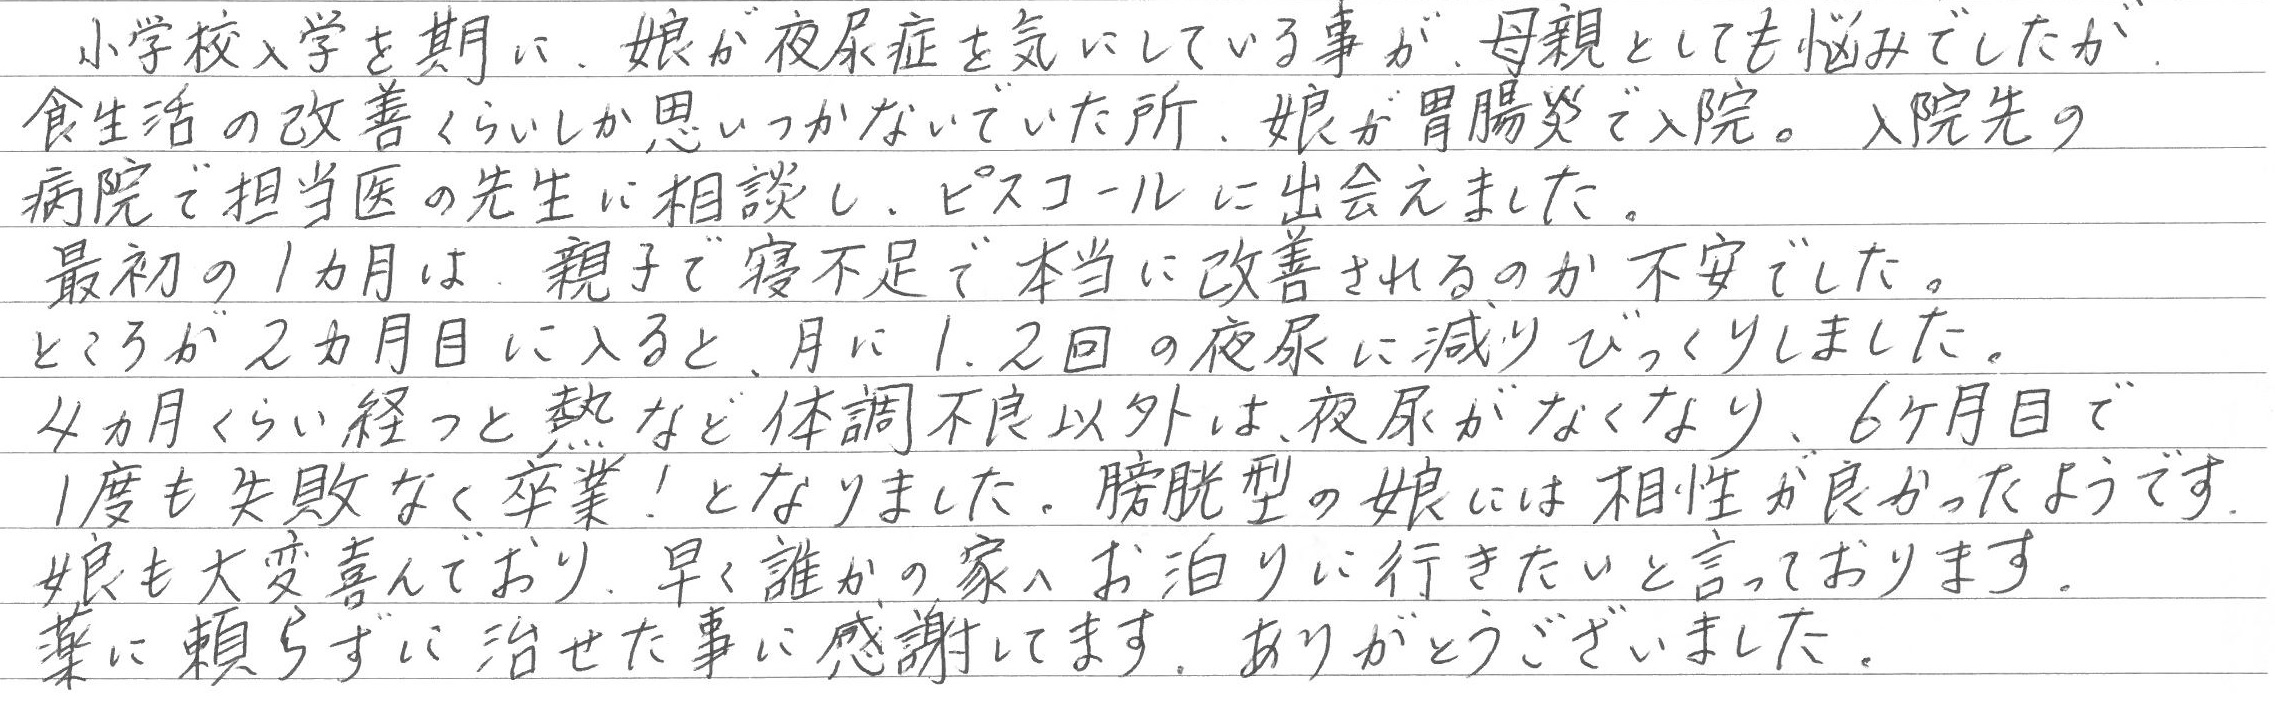 小学校入学を期に、娘が夜尿症を気にしている事が、母親としても悩みでしたが、
食生活の改善くらいしか思いつかないでいた所、娘が胃腸炎で入院。 入院先の
病院で担当医の先生に相談し、ピスコールに出会えました。
最初の1カ月は、親子で寝不足で本当に改善されるのか不安でした。
ところが2カ月目に入ると、月に1、2回の夜尿に減りびっくりしました。
4ヵ月くらい経つと熱など体調不良以外は、夜尿がなくなり、6ケ月目で
1度も失敗なく卒業!となりました。膀胱型の娘には相性が良かったようです。
娘も大変喜んでおり、早く誰かの家へお泊りに行きたいと言っております。
薬に頼らずに治せた事に感謝してます。ありがとうございました。